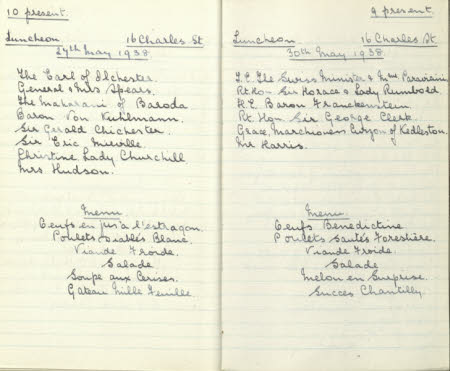 10 present.
Luncheon 16 Charles St
27th May 1938
The Earl of Ilchester.
General & Mrs Spears.
The Maharani of Baroda
Baron Von Kuhlmann.
Sir Gerald Chichester.
Sir Eric Mieville.
Christine Lady Churchill
Mrs Hudson.
Menu
Oeufs en jus à l'estragon.
Poulets Diablés Blanc.
Viande Froide.
Salade
Soupe aux Cerises.
Gateau Mille Feuille.
9 present.
Luncheon. 16 Charles St
30th May 1938.
T.E. The Swiss Minister & Mme Paravicini
Rt Hon Sir Horace & Lady Rumbold.
H.E. Baron Franckenstein.
Rt. Hon Sir George Clerk.
Grace, Marchioness Curzon of Kedleston.
Mr Harris.
Menu.
Oeufs Benedictine
Poulets Sautés Forestière.
Viande Froide.
Salade
Melon en Surprise.
Succes Chantilly.